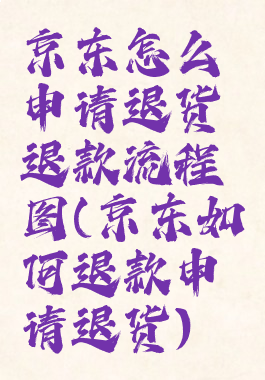 京东怎么
申请退货
退款流程
图(京东如
何退款申
请退货)